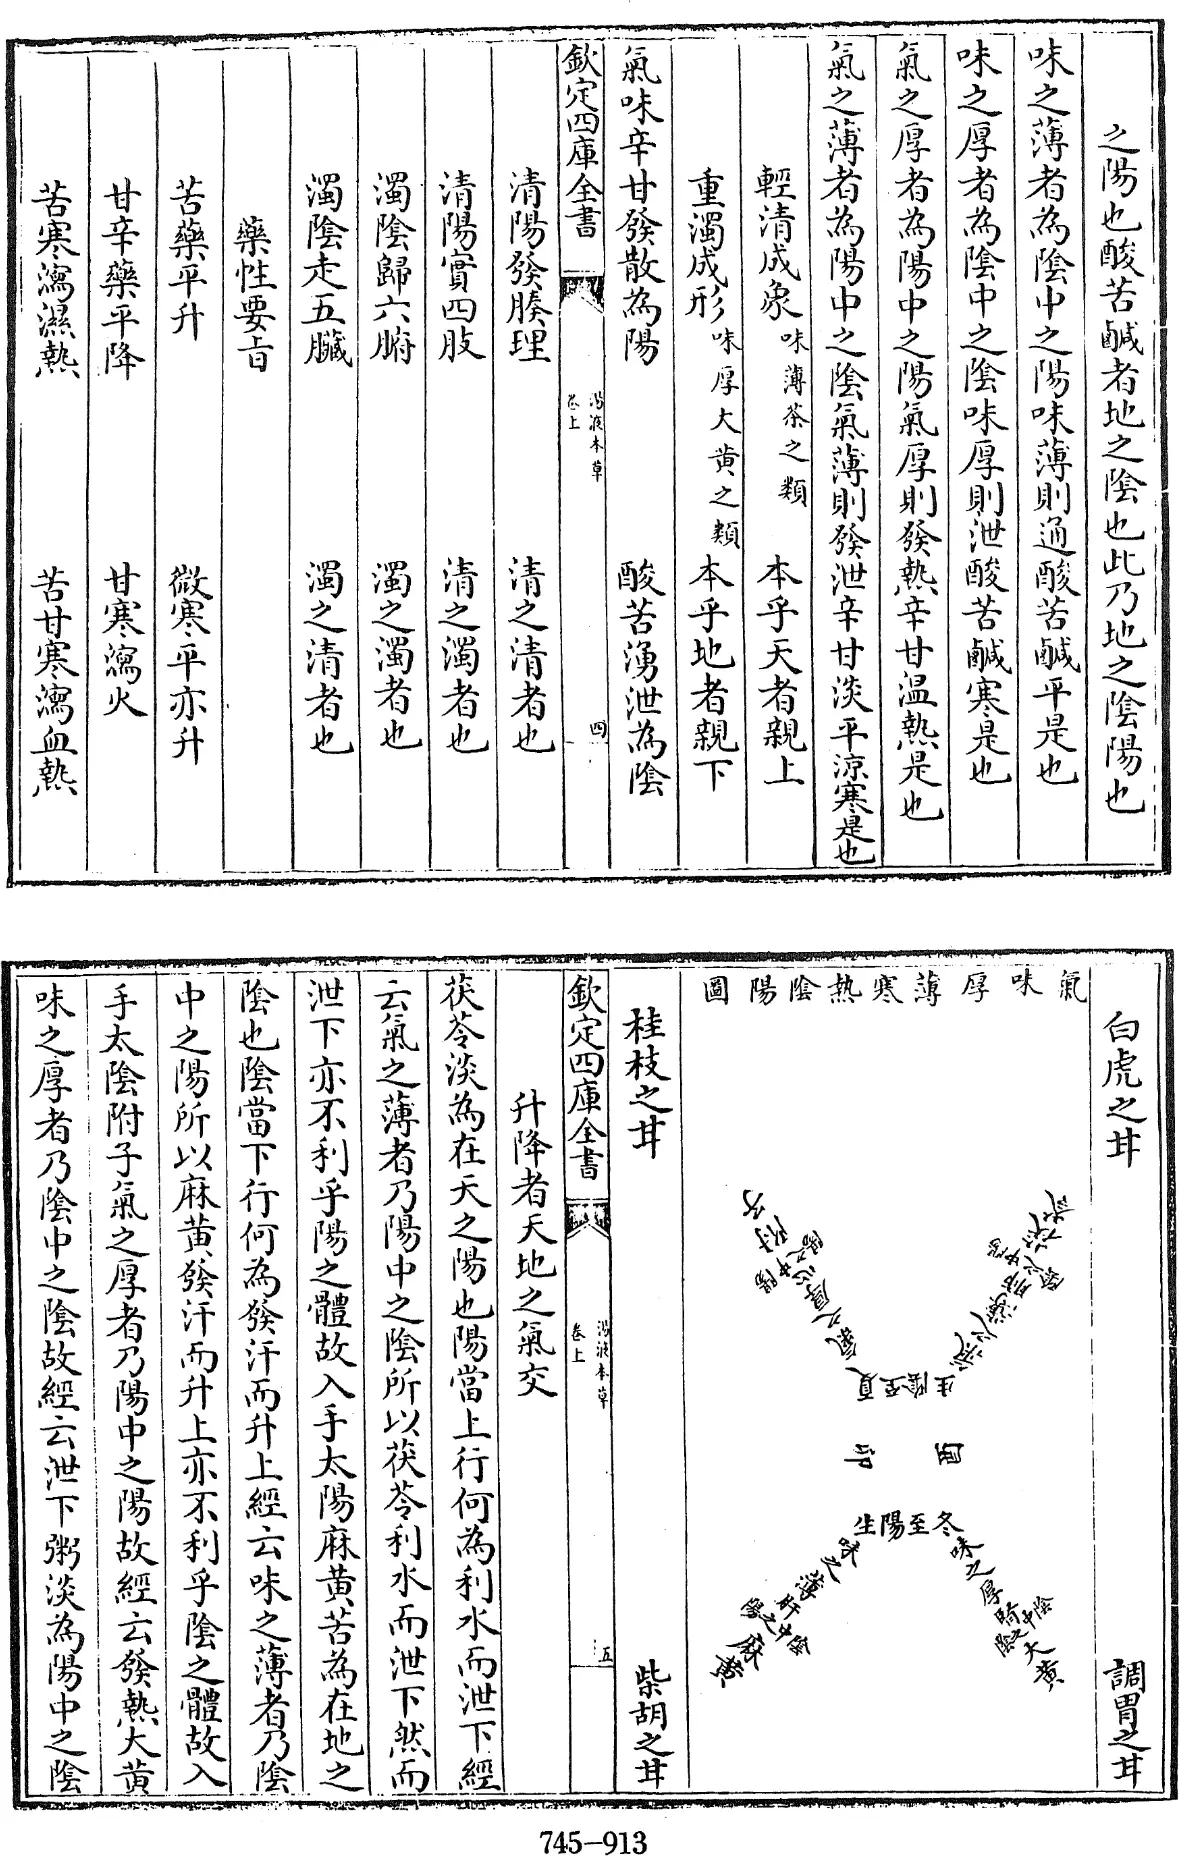 之陽也酸苦鹹者地之陰也此乃地之陰陽也
味之薄者為陰中之陽味薄則通酸苦鹹平是也
味之厚者為陰中之陰味厚則泄酸苦鹹寒是也
氣之厚者為陽中之陽氣厚則發熱辛甘温熱是也
氣之薄者為陽中之陰氣薄則發泄辛甘淡平涼寒是也
輕清成象味薄茶之類 本乎天者親上
重濁成形味厚大黄之類 本乎地者親下
氣味辛甘發散為陽 酸苦湧泄為陰
欽定四庫全書 湯液本草 卷上 四
清陽發腠理 清之清者也
清陽實四肢 清之濁者也
濁陰歸六腑 濁之濁者也
濁陰走五臟 濁之清者也
藥性要旨
苦藥平升 微寒平亦升
甘辛藥平降 甘寒瀉火
苦寒瀉濕熱 苦甘寒瀉血熱
白虎之甘 調胃之甘
氣味厚薄寒熱陰陽圖
夏至陰生
冬至陽生
氣之厚心陽中之陽附子
味之厚腎陰中之陰大黄
味之薄肝陰中之陽麻黄
桂枝之甘 柴胡之甘
欽定四庫全書 湯液本草 卷上 五
升降者天地之氣交
茯苓淡為在天之陽也陽當上行何為利水而泄下經
云氣之薄者乃陽中之陰所以茯苓利水而泄下然而
泄下亦不利乎陽之體故入手太陽麻黄苦為在地之
陰也陰當下行何為發汗而升上經云味之薄者乃陰
中之陽所以麻黄發汗而升上亦不利乎陰之體故入
手太陰附子氣之厚者乃陽中之陽故經云發熱大黄
味之厚者乃陰中之陰故經云泄下粥淡為陽中之陰
745-913